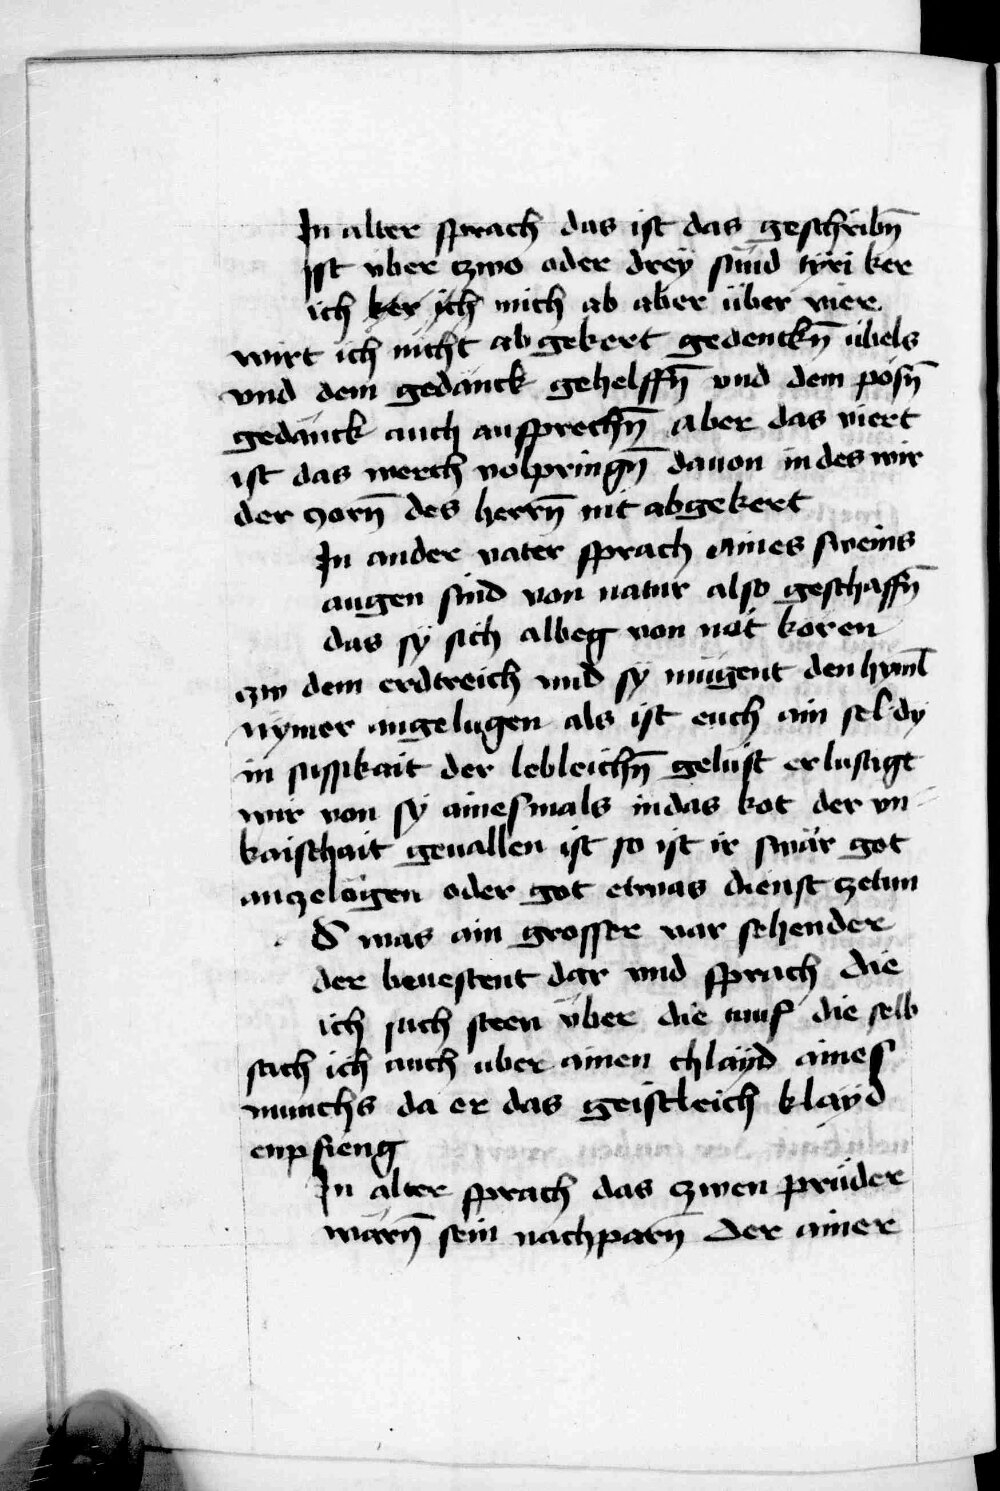 In alter sprach das ist das geschribn̄
Ist vber czwo oder drey sünd tyri ker
ich ker ich mich ab aber über vier
wirt ich nicht ab gekert gedenckn̄ übels
vnd dem gedänck gehelffn̄ vnd dem pösn̄
gedänck auch aufsprechn̄ Aber das viert
ist das werch volpringn̄ dauon in des wir
der zorn̄ des herrn̄ nit abgekert
In ander vater sprach Aines sweins
augen sind von natur also geschaffn̄
das sy sich albeg von nöt kören
zw dem erdtreich vnd sy mügent den hyml̄
nymer angelugen als ist euch ain sel dy
in sussikait der lebleichn̄ gelüst erlustigt
wir von sy ainesmals in das kot der vn-
kaischait geuallen ist so ist ir swär got
anzelügen oder got etwas dienst zetun
Es was ain grosser var sehender
der beuestent dar vnd sprach die
ich sach steen über die tauf die selb
sach ich auch uber ainen chlayd aines
munchs da er das geistleich klayd
enpfieng
In alter sprach das zwen prüder
warn̄ sein nachparn̄ Der ainer